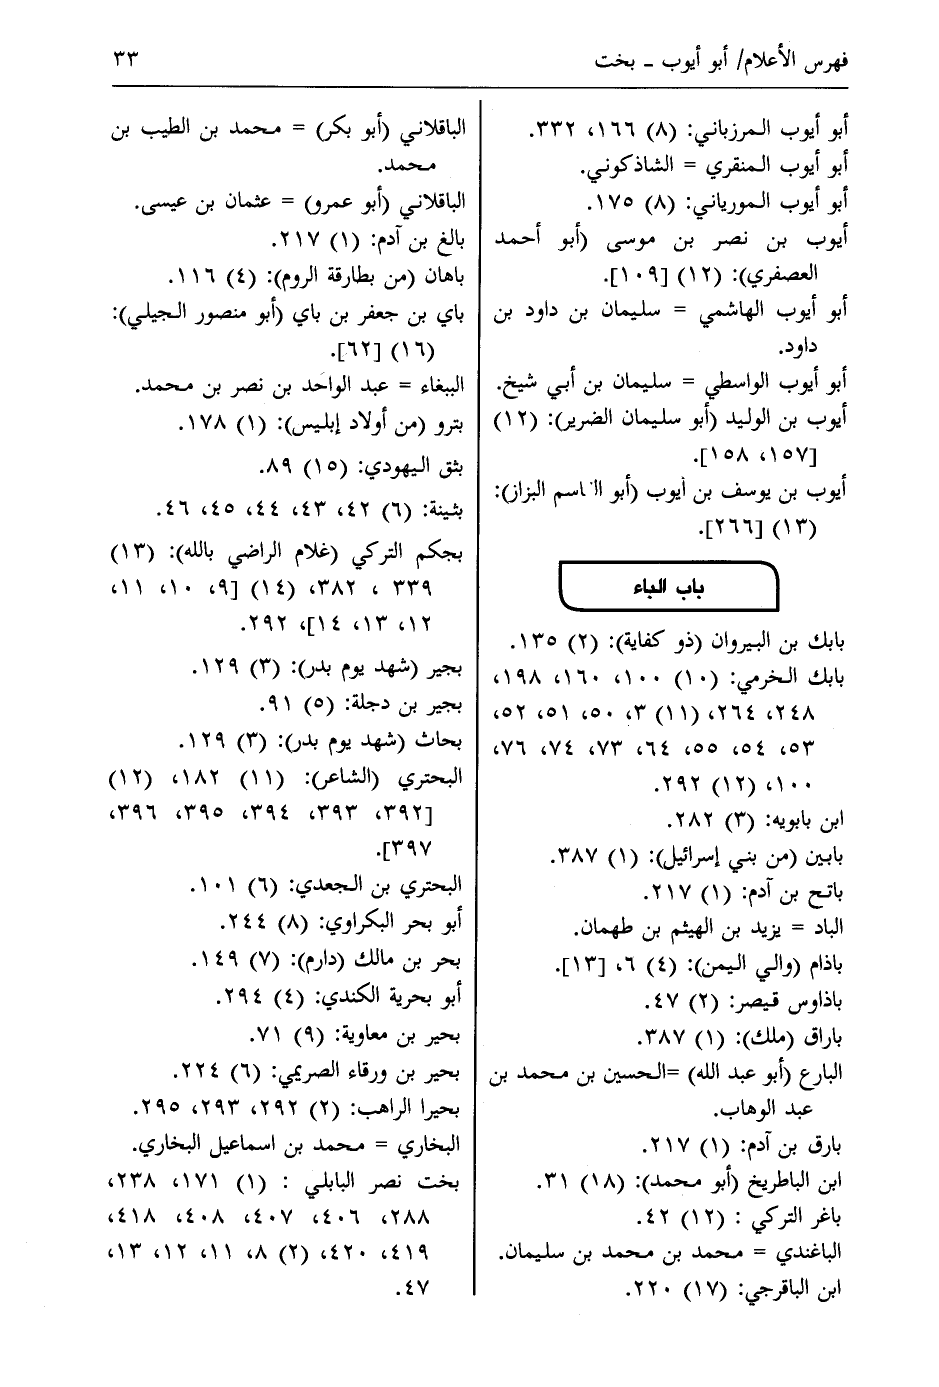 فهرس الأعلام/ أبو أيوب ـ بخت
٣٣
أبو أيوب المرزباني: (٨) ١٦٦، ٣٣٢.
أبو أيوب المنقري = الشاذكوني.
أبو أيوب المورياني: (٨) ١٧٥.
أيوب بن نصر بن موسى (أبو أحمد
العصفري): (١٢) [١٠٩].
أبو أيوب الهاشمي = سليمان بن داود بن
داود.
أبو أيوب الواسطي = سليمان بن أبي شيخ.
أيوب بن الوليد (أبو سليمان الضرير): (١٢)
[١٥٧، ١٥٨].
أيوب بن يوسف بن أيوب (أبو القاسم البزاز):
(١٣) [٢٦٦].
باب الباء
بابك بن البيروان (ذو كفاية): (٢) ١٣٥.
بابك الخرمي: (١٠) ١٠٠، ١٦٠، ١٩٨،
٢٤٨، ٢٦٤، (١١) ٣، ٥٠، ٥١، ٥٢،
٥٣، ٥٤، ٥٥، ٦٤، ٧٣، ٧٤، ٧٦،
١٠٠، (١٢) ٢٩٢.
ابن بابويه: (٣) ٢٨٢.
بابين (من بني إسرائيل): (١) ٣٨٧.
باتح بن آدم: (١) ٢١٧.
الباد = يزيد بن الهيثم بن طهمان.
باذام (والي اليمن): (٤) ٦، [١٣].
باذاوس قيصر: (٢) ٤٧.
باراق (ملك): (١) ٣٨٧.
البارع (أبو عبد الله) =الحسين بن محمد بن
عبد الوهاب.
بارق بن آدم: (١) ٢١٧.
ابن الباطريخ (أبو محمد): (١٨) ٣١.
باغر التركي : (١٢) ٤٢.
الباغندي = محمد بن محمد بن سليمان.
ابن الباقرجي: (١٧) ٢٢٠.
الباقلاني (أبو بكر) = محمد بن الطيب بن
محمد.
الباقلاني (أبو عمرو) = عثمان بن عيسى.
بالغ بن آدم: (١) ٢١٧.
باهان (من بطارقة الروم): (٤) ١١٦.
باي بن جعفر بن باي (أبو منصور الجيلي):
(١٦) [٦٢].
الببغاء = عبد الواحد بن نصر بن محمد.
بترو (من أولاد إبليس): (١) ١٧٨.
بثق اليهودي: (١٥) ٨٩.
بثينة: (٦) ٤٢، ٤٣، ٤٤، ٤٥، ٤٦.
بجكم التركي (غلام الراضي بالله): (١٣)
٣٣٩ ، ٣٨٢، (١٤) [٩، ١٠، ١١،
١٢، ١٣، ١٤]، ٢٩٢.
بجير (شهد يوم بدر): (٣) ١٢٩.
بجير بن دجلة: (٥) ٩١.
بحاث (شهد يوم بدر): (٣) ١٢٩.
البحتري (الشاعر): (١١) ١٨٢، (١٢)
[٣٩٢، ٣٩٣، ٣٩٤، ٣٩٥، ٣٩٦،
٣٩٧].
البحتري بن الجعدي: (٦) ١٠١.
أبو بحر البكراوي: (٨) ٢٤٤.
بحر بن مالك (دارم): (٧) ١٤٩.
أبو بحرية الكندي: (٤) ٢٩٤.
بحير بن معاوية: (٩) ٧١.
بحير بن ورقاء الصريمي: (٦) ٢٢٤.
بحيرا الراهب: (٢) ٢٩٢، ٢٩٣، ٢٩٥.
البخاري = محمد بن اسماعيل البخاري.
بخت نصر البابلي : (١) ١٧١، ٢٣٨،
٢٨٨، ٤٠٦، ٤٠٧، ٤٠٨، ٤١٨،
٤١٩، ٤٢٠، (٢) ٨، ١١، ١٢، ١٣،
٤٧.